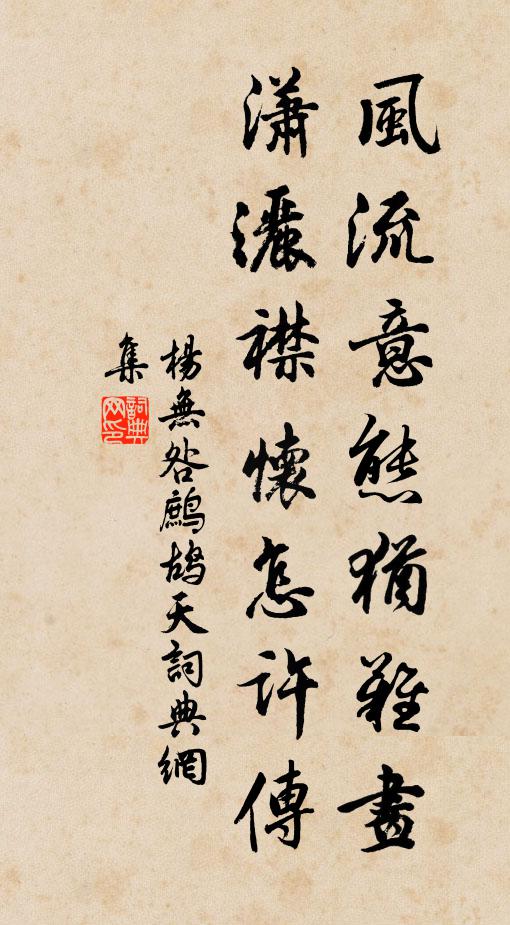 風流意態猶難畫
瀟灑襟懷怎許傳
楊無咎鷓鴣天詞典網
集
詞典
网印